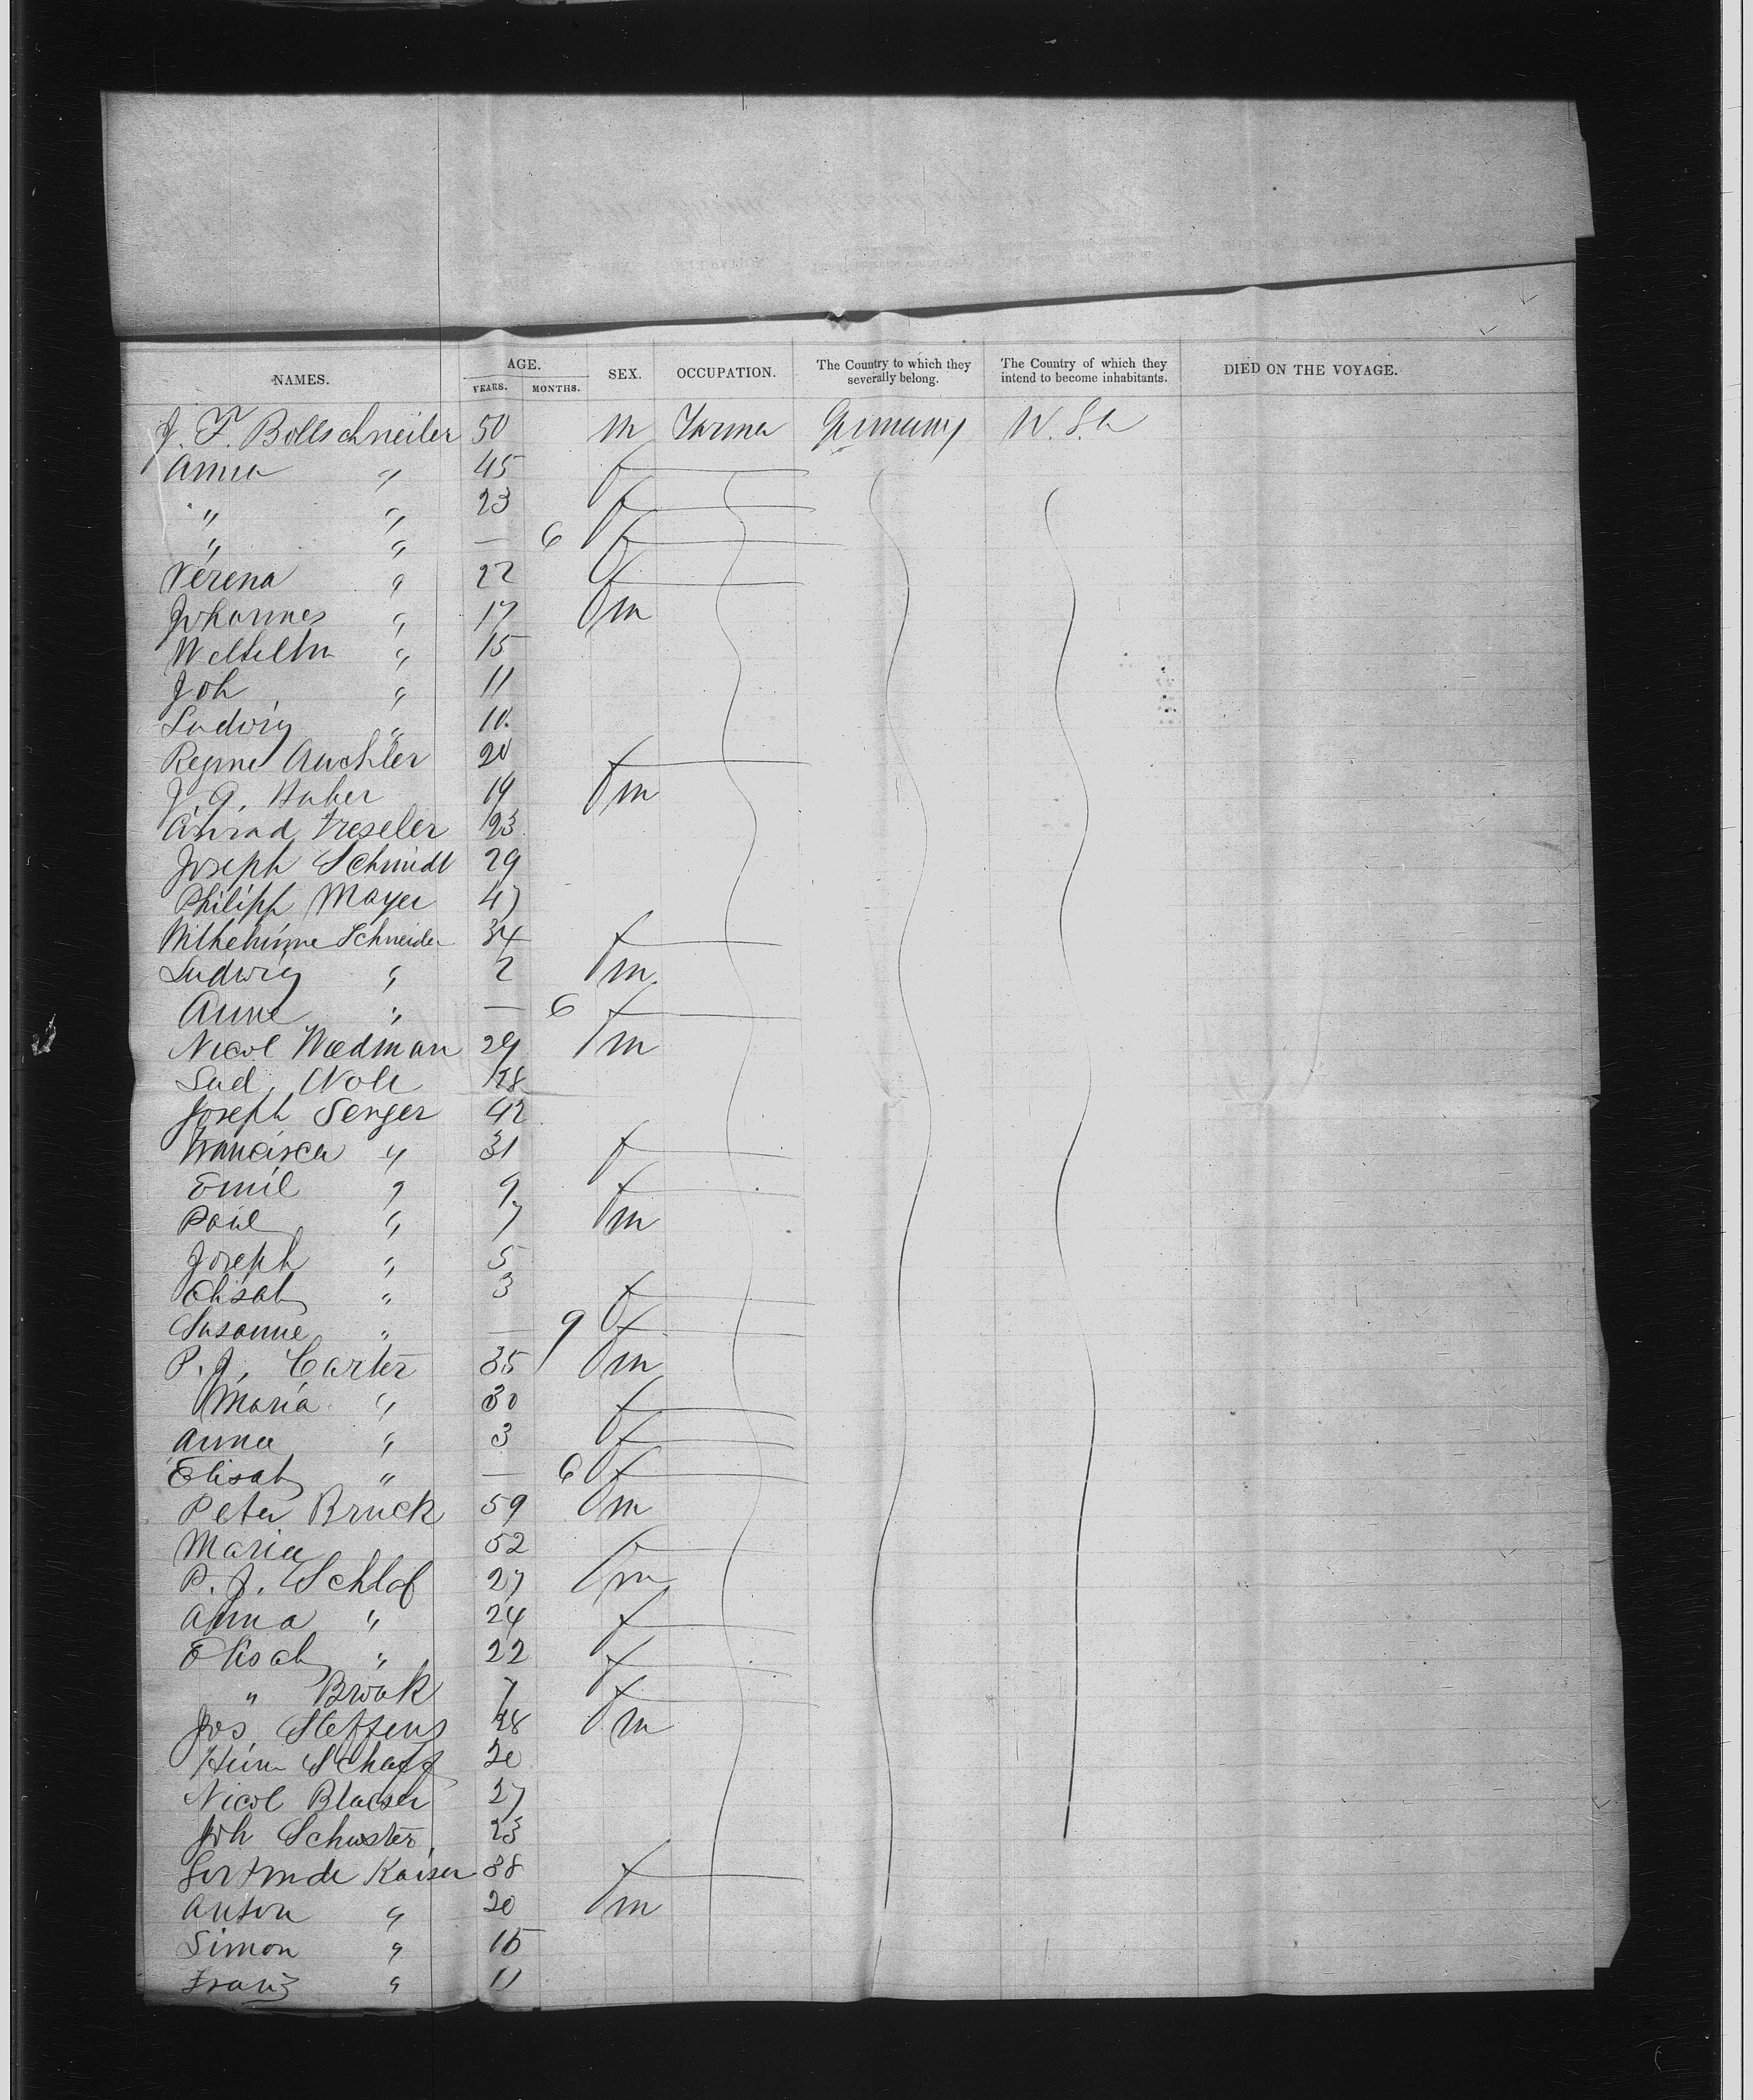 NAMES. AGE. YEARS. MONTHS. SEX. OCCUPATION. The Country to which they severally belong. The Country of which they intend to become inhabitants. DIED ON THE VOYAGE.
J. F. Bollschneiler 50 m Farmer Germany U. S. A
Anna " 45 f
" " 23 f
" " — 6 f
Verena " 22 f
Johannes " 17 m
" 15
Joh " 11
Ludwig " 10
Regine Auchter 20 f
J. A. Huber 19 m
Conrad Freseler 23
Joseph Schmidt 29
Philipp Mayer 47
Wilhelmine Schneider 34 f
Ludwig " 2 m
Anne " — 6 f
Nicol Wedman 29 m
Lud. Nole 18
Joseph Senger 42
Francisca " 31 f
Emil " 9 f
Paul " 7 m
Joseph " 5
Elisab " 3 f
Susanne " — 9 f
P. J. Carter 35 m
Maria " 30 f
Anna " 3 f
Elisab " — 6 f
Peter Bruck 59 m
Maria 52 f
P. J. Schlof 27 m
Anna " 24 f
Elisab " 22 f
" Bruck 7 f
Jos. Steffens 28 m
Schaff 20
Nicol Blaeser 27
Joh Schuster 23
Gertrude Kaiser 38 f
Anton " 20 m
Simon " 15
Franz " 11